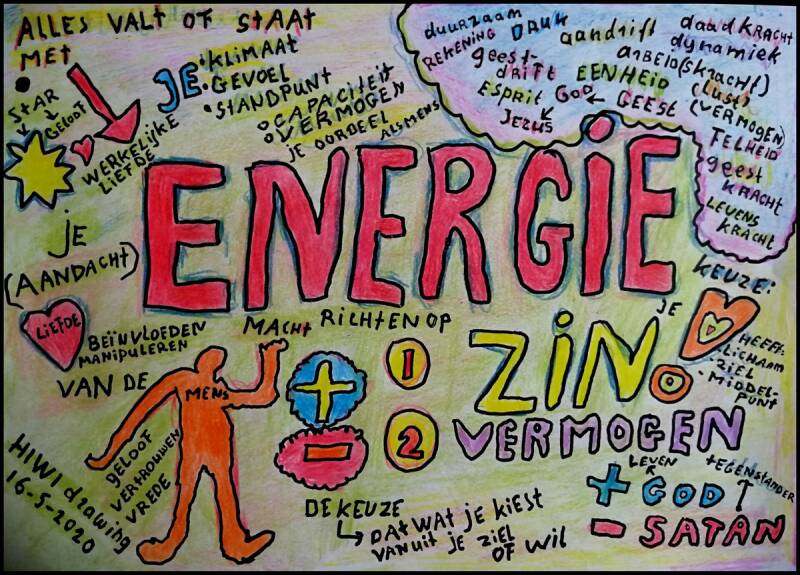 ALLES VALT OF STAAT
MET
STAR
GELOOF
WERKELIJKE
LIEFDE
JE
• KLIMAAT
• GEVOEL
• STANDPUNT
CAPACITEIT
VERMOGEN
JE OORDEEL
ALS MENS
duurzaam
REKENING
DRUK
aandrift
daadKRACHT
dynamiek
geest-
drift
EENHEID
ARBEID(SKRACHT)
(lust)
ESPRIT
GOD
GEEST
(VERMOGEN)
JEZUS
FELHEID
geest
KRACHT
LEVENS
KRACHT
ENERGIE
je
(AANDACHT)
LIEFDE
BEÏNVLOEDEN
MANIPULEREN
MACHT
RICHTEN OP
VAN DE
MENS
GELOOF
VERTROUWEN
VREDE
+
-
1
2
KEUZE:
JE
ZIN
HEEFT:
- LICHAAM
- ZIEL
- MIDDEL-
PUNT
VERMOGEN
LEVEN
TEGENSTANDER
+ GOD
- SATAN
DE KEUZE
DAT WAT JE KIEST
VANUIT JE ZIEL
OF WIL
HIWI drawing
16-5-2020